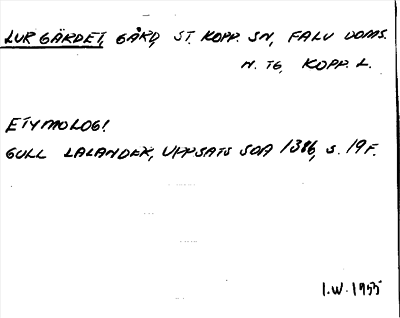 LURGÄRDET, GÅRD, ST. KOPP. SN, FALU DOMS.
N. TG, KOPP. L.
ETYMOLOGI
GULL LALANDER, UPPSATS SOA 1386, S. 19 F.
I.W. 1955